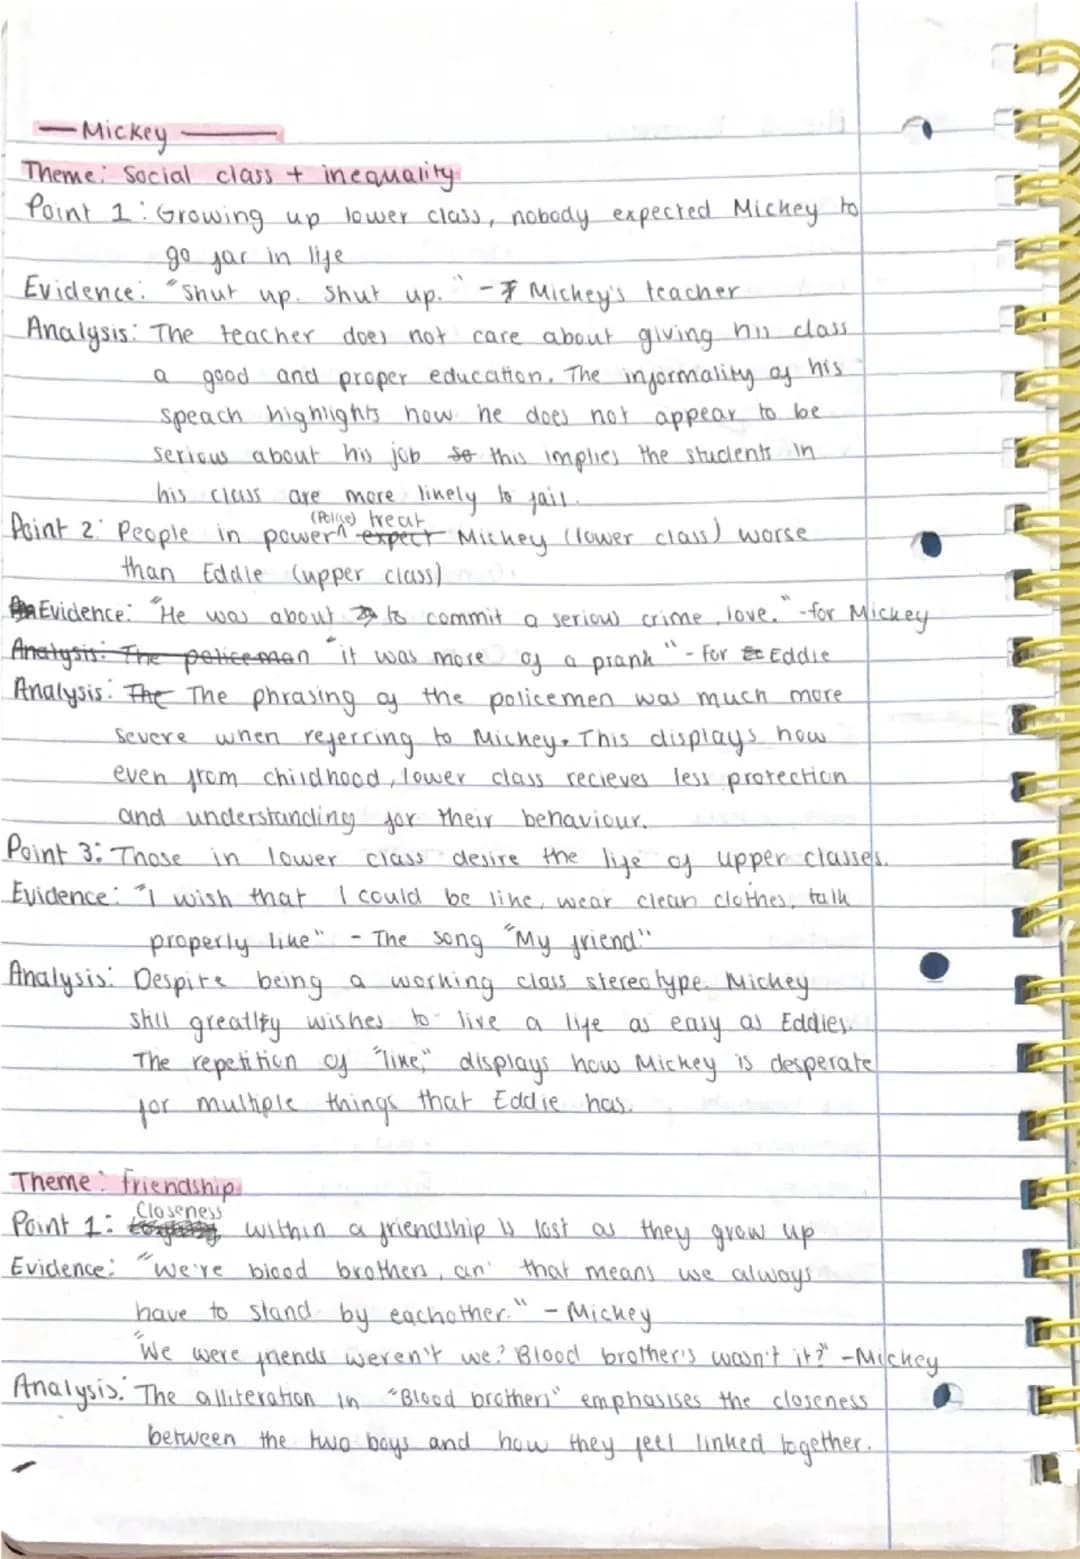 — Mickey —
Theme: Social class + inequality
Point 1: Growing up lower class, nobody expected Mickey to
go far in life
Evidence: "Shut up. Shut up." - Mickey's teacher
Analysis: The teacher does not care about giving his class
a good and proper education. The informality of his
speach highlights how he does not appear to be
serious about his job so this implies the students in
his class are more likely to fail.
(Police) treat
Point 2: People in power^ expect Mickey (lower class) worse
than Eddie (upper class)
Evidence: "He was about to commit a serious crime, love." - for Mickey
Analysis: The policeman "it was more of a prank" - For Eddie
Analysis: The The phrasing of the policemen was much more
severe when referring to Mickey. This displays how
even from childhood, lower class recieves less protection
and understanding for their behaviour.
Point 3: Those in lower class desire the life of upper classes.
Evidence: "I wish that I could be like, wear clean clothes, talk
properly like" - The song "My friend"
Analysis: Despite being a working class stereotype Mickey
still greatly wishes to live a life as easy as Eddies.
The repetition of "like," displays how Mickey is desperate
for multiple things that Eddie has.
Theme: friendship
Closeness
Point 1: within a friendship is lost as they grow up
Evidence: "We're blood brothers, an' that means we always
have to stand by eachother." - Mickey
"We were friends weren't we? Blood brother's wasn't it?" - Mickey
Analysis: The alliteration in "Blood brothers" emphasises the closeness
between the two boys and how they feel linked together.